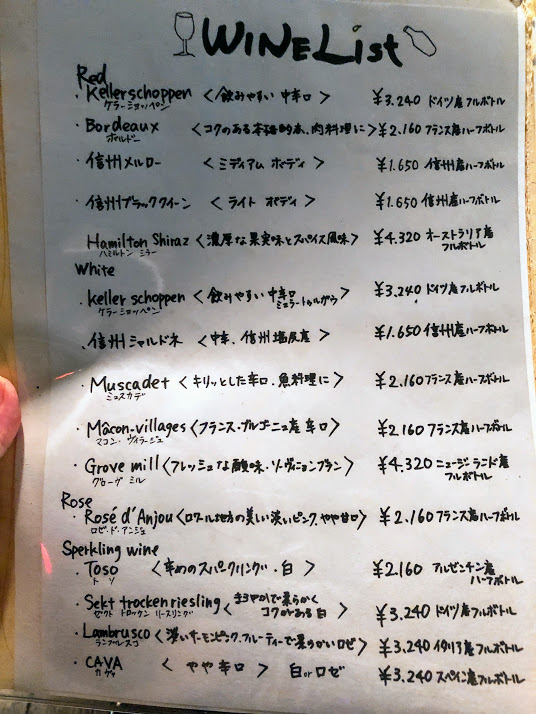 WINE List
Red
・Kellerschoppen <飲みやすい 中辛口> ¥3.240 ドイツ産 フルボトル
ケラーショッペン
・Bordeaux <コクのある本格的赤.肉料理に> ¥2.160 フランス産ハーフボトル
ボルドー
・信州メルロー <ミディアム ボディ> ¥1.650 信州産ハーフボトル
・信州ブラッククイーン <ライト ボディ> ¥1.650 信州産ハーフボトル
Hamilton Shiraz <濃厚な果実味とスパイス風味> ¥4.320 オーストラリア産
ハミルトン シラー フルボトル
White
・Keller schoppen <飲みやすい 中辛口 ¥3.240 ドイツ産 フルボトル
ケラーショッペン ミュラートゥルガウ>
・信州シャルドネ <中辛、信州塩尻産> ¥1.650 信州産ハーフボトル
・Muscadet <キリッとした辛口.魚料理に> ¥2.160 フランス産ハーフボトル
ミュスカデ
・Mâcon-villages <フランス・ブルゴーニュ産 辛口> ¥2.160 フランス産ハーフボトル
マコン・ヴィラージュ
・Grove mill <フレッシュな酸味・ソーヴィニョンブラン> ¥4.320 ニュージーランド産
グローヴ ミル フルボトル
Rose
・Rosé d'Anjou <ロワール地方の美しい淡いピンク.やや甘口> ¥2.160 フランス産ハーフボトル
ロゼ・ド・アンジュ
Sperkling wine
・Toso <辛めのスパークリング・白> ¥2.160 アルゼンチン産
トソ ハーフボトル
・Sekt trocken riesling <まろやかで柔らかく ¥3.240 ドイツ産 フルボトル
ゼクト トロッケン リースリング コクがある 白>
・Lambrusco <濃いサーモンピンク.フルーティーで柔らかいロゼ> ¥3.240 イタリア産 フルボトル
ランブルスコ
・CAVA <やや辛口> 白orロゼ ¥3.240 スペイン産フルボトル
カヴァ